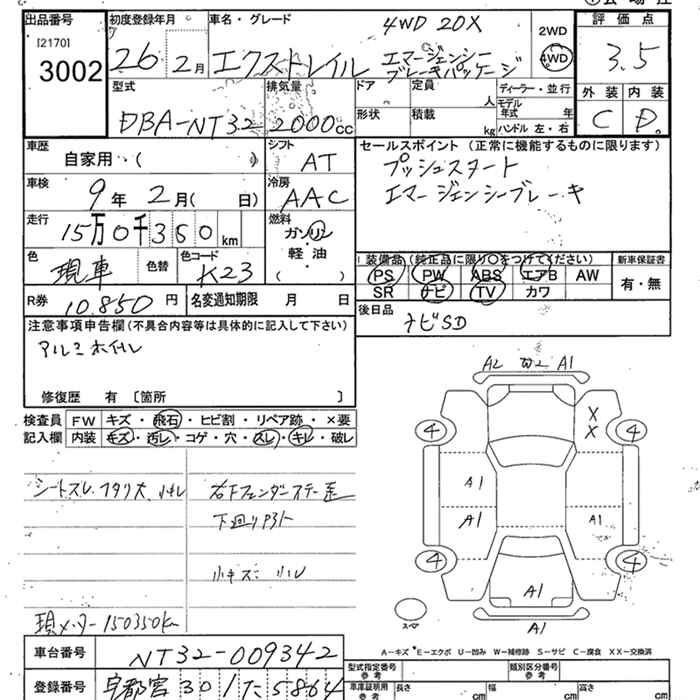 出品番号
[2170]
3002
初度登録年月
26 2月
車名・グレード
4WD 20X
エクストレイル エマージェンシー
ブレーキパッケージ
2WD
4WD
評価点
3.5
外装 内装
C D.
型式
DBA-NT32
排気量
2000cc
ドア 定員 人
形状 積載 kg
ディーラー・並行
モデル年式 年
ハンドル 左・右
車歴
自家用・( )
シフト
AT
車検
9年 2月( 日)
冷房
AAC
走行
15万0千350km
燃料
ガソリン
軽油
( )
色
現車
色替
色コード
K23
R券
10.850円
名変通知期限 月 日
セールスポイント (正常に機能するものに限ります)
プッシュスタート
エマージェンシーブレーキ
装備品 (純正品に限り○をつけてください)
PS PW ABS エアB AW
SR ナビ TV カワ
新車保証書
有・無
後日品
ナビSD
注意事項申告欄 (不具合内容等は具体的に記入して下さい)
アルミホイール
修復歴 有 〔箇所 〕
検査員記入欄
FW キズ・飛石・ヒビ割・リペア跡・×要
内装 キズ・汚レ・コゲ・穴・スレ・キレ・破レ
シートスレ、フタ欠 小キレ
右下フェンダーステー歪
下廻りPサビ
小キズ 小凹
現メーター150350km
A2 W2 A1
X
X
4 4
A1
A1 A1
4 4
A1
A1
スペア
A−キズ E−エクボ U−凹み W−補修跡 S−サビ C−腐食 XX−交換済
車台番号
NT32-009342
登録番号
宇都宮 301 た 5864
型式指定番号
参考
類別区分番号
参考
車庫証明用
参考
長さ cm
幅 cm
高さ cm